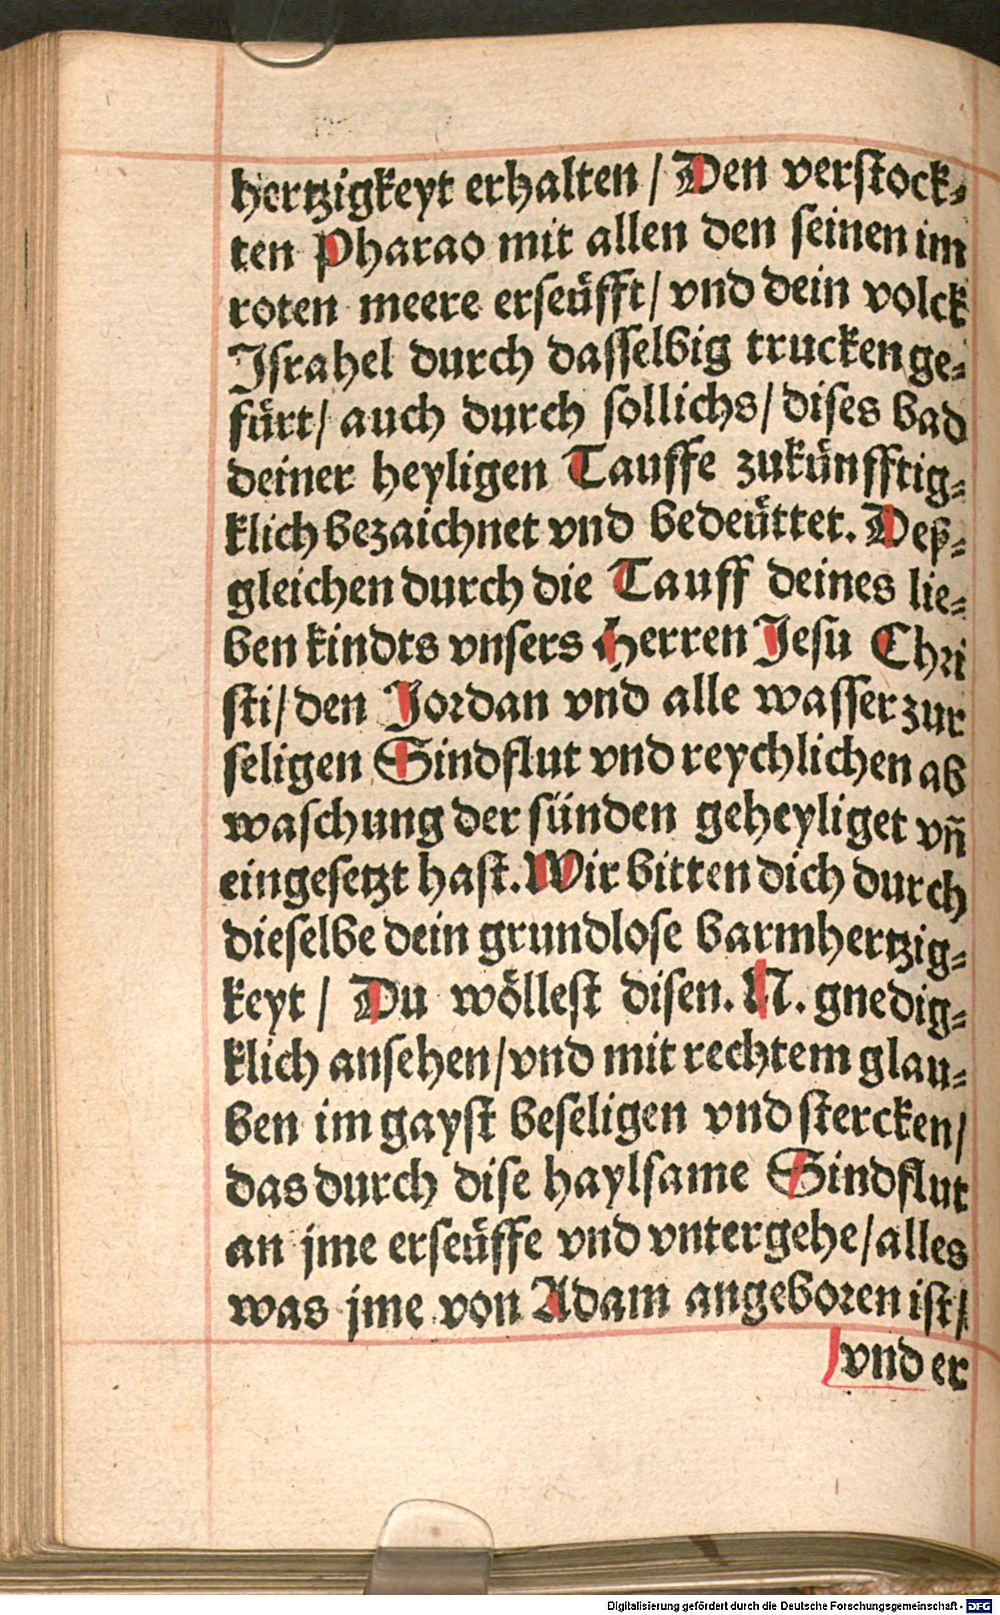 hertzigkeyt erhalten / Den verstock⸗
ten Pharao mit allen den seinen im
roten meere erseuͤfft / vnd dein volck
Jsrahel durch dasselbig trucken ge⸗
fuͤrt / auch durch sollichs / dises bad
deiner heyligen Tauffe zukuͤnfftig⸗
klich bezaichnet vnd bedeuͤttet. Deß⸗
gleichen durch die Tauff deines lie⸗
ben kindts vnsers Herren Jesu Chri
sti / den Jordan vnd alle wasser zur
seligen Sindflut vnd reychlichen ab
waschung der sünden geheyliget vñ
eingesetzt hast. Wir bitten dich durch
dieselbe dein grundlose barmhertzig⸗
keyt / Du woͤllest disen. N. gnedig⸗
klich ansehen / vnd mit rechtem glau⸗
ben im gayst beseligen vnd stercken /
das durch dise haylsame Sindflut
an jme erseuͤffe vnd vntergehe / alles
was jme von Adam angeboren ist /
vnd er
Digitalisierung gefördert durch die Deutsche Forschungsgemeinschaft - DFG